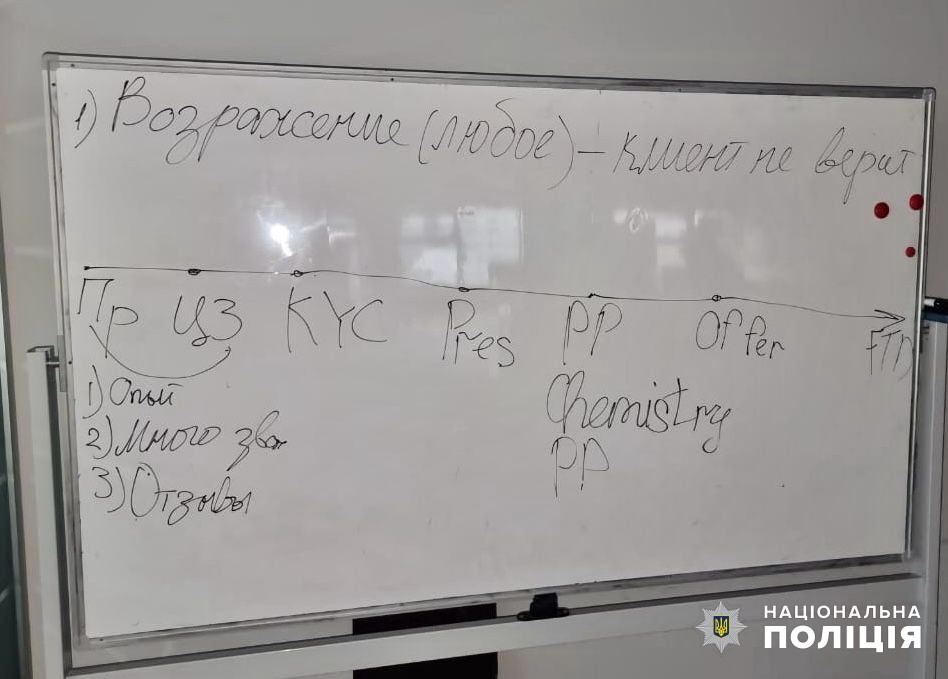 1) Возражение (любое) – клиент не верит
Пр ЦЗ KYC Pres PP Offer FTD
1) Опыт
2) Много зво
3) Отзывы
Chemistry
PP
НАЦІОНАЛЬНА
ПОЛІЦІЯ